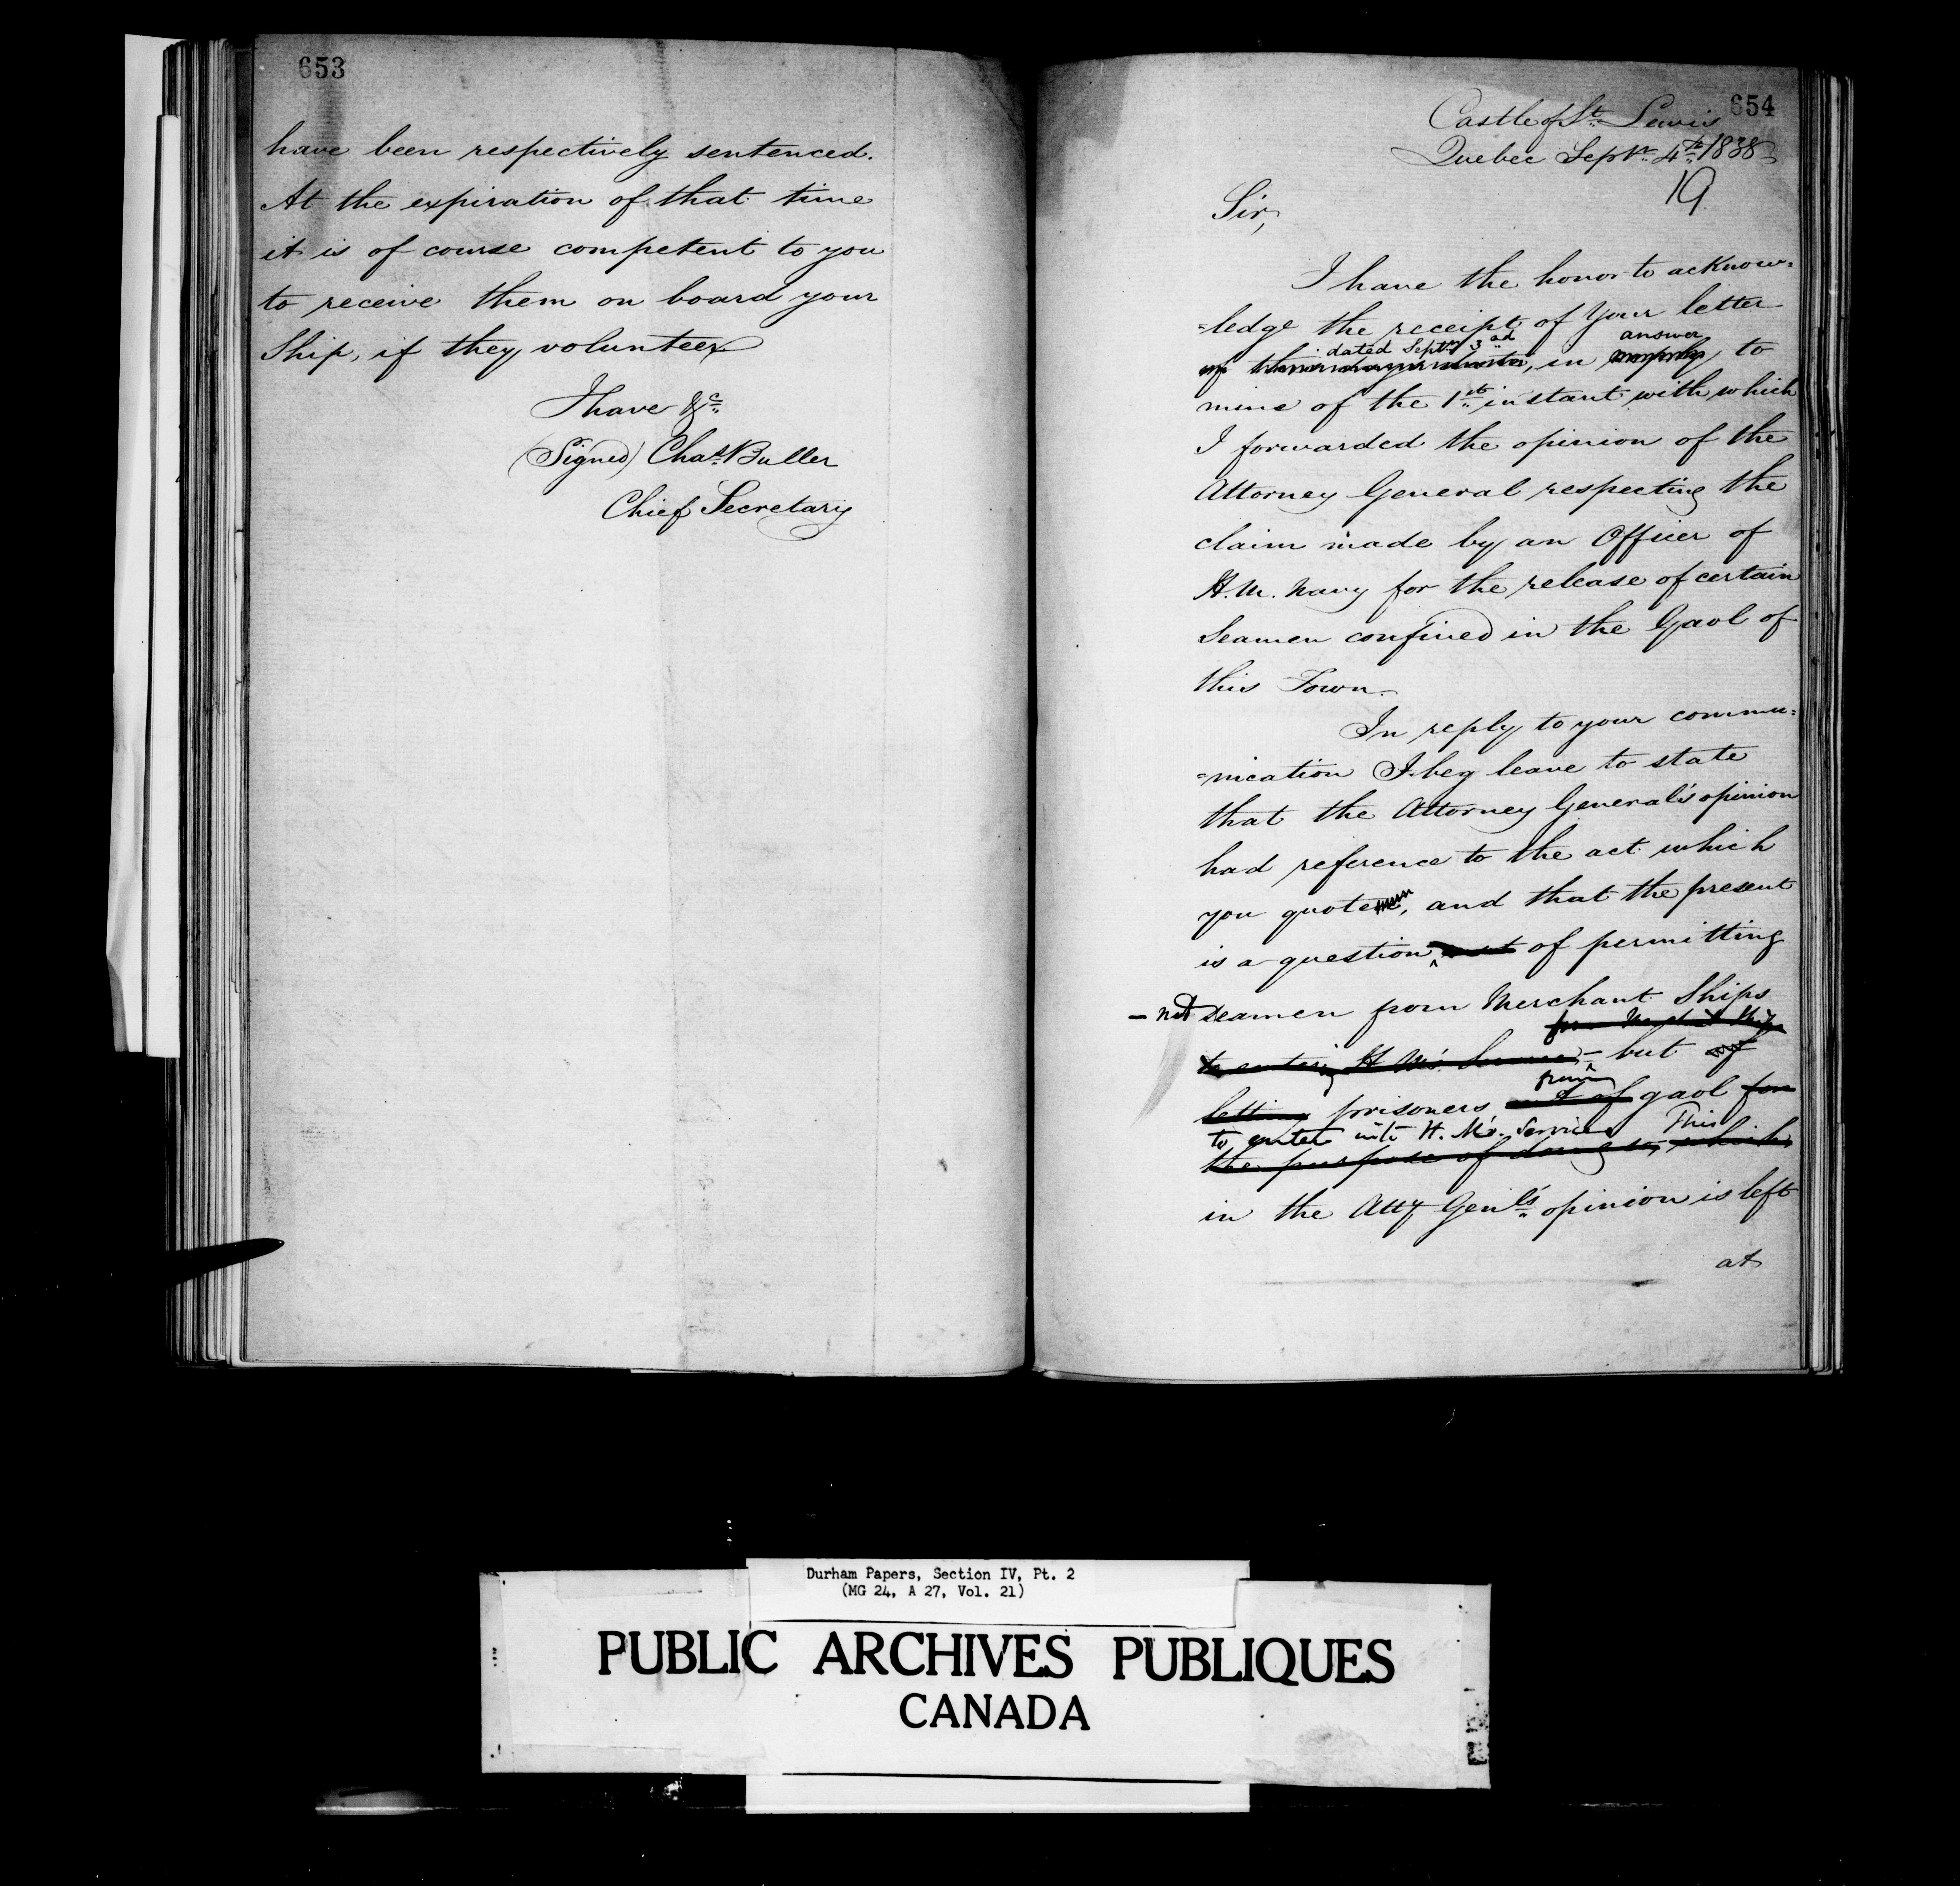 653
have been respectively sentenced.
At the expiration of that time
it is of course competent to you
to receive them on board your
Ship, if they volunteer
I have &c
(Signed) Chas. Buller
Chief Secretary
654
Castle of St. Lewis
Quebec Septr. 4th 1838
19
Sir,
I have the honor to acknow=
=ledge the receipt of Your letter
dated Septr. 3rd answer
in to
mine of the 1st instant with which
I forwarded the opinion of the
Attorney General respecting the
claim made by an Officer of
H.M. Navy for the release of certain
Seamen confined in the Gaol of
this Town.
In reply to your commu=
=nication I beg leave to state
that the Attorney General's opinion
had reference to the act which
you quote, and that the present
is a question not of permitting
- not Seamen from Merchant Ships
from Merchant Ships
to entering H M's. Service - but of
from
letting prisoners out of gaol for
to enter into H. M's. Service This
the purpose of doing so, which
in the Atty Genl's. opinion is left
at
Durham Papers, Section IV, Pt. 2
(MG 24, A 27, Vol. 21)
PUBLIC ARCHIVES PUBLIQUES
CANADA